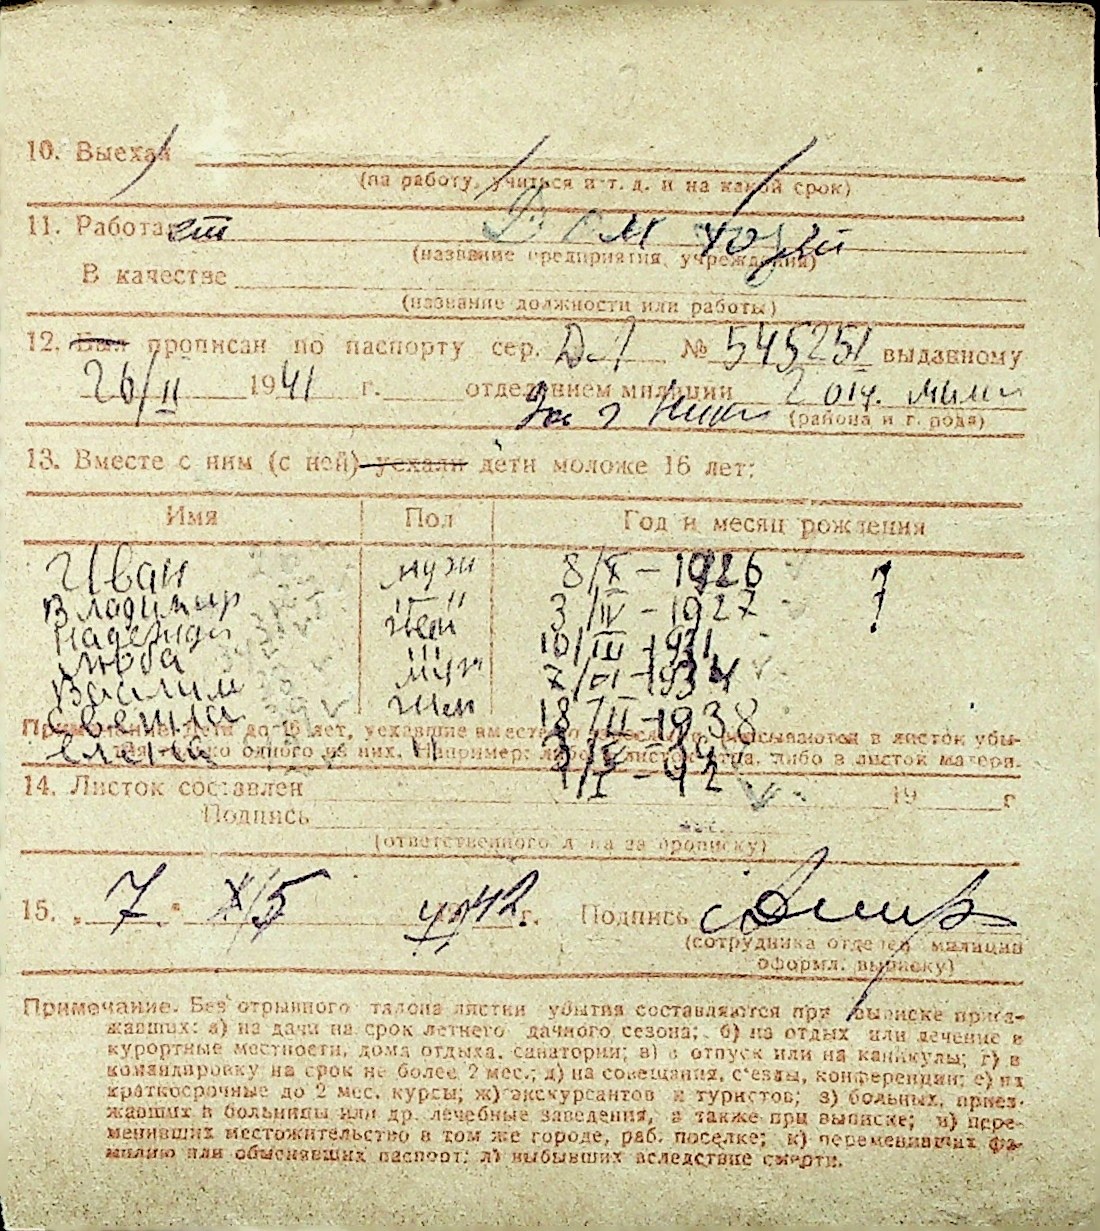 10. Выехал
(на работу, учиться и т. д. и на какой срок)
11. Работает Дом хозяй
(название предприятия, учреждения)
В качестве
(название должности или работы)
12. Был прописан по паспорту сер. № 545251 выданному
26/II 1941 г. отделением милиции 2 отд. мили
(района и города)
13. Вместе с ним (с ней) уехали дети моложе 16 лет:
Имя Пол Год и месяц рождения
Иван муж 8/X - 1926
Владимир 3/IV - 1927
Надежда жен 10/III - 1931
Люба 7/VI - 1934
Василий муж 18/II - 1938
Светла жен
Елена
Примечание. Дети до 16 лет, уехавшие вместе со взрослыми, вписываются в листок убы-
тия только одного из них. Например: либо в листок отца, либо в листок матери.
14. Листок составлен 19 г
Подпись
(ответственного л на за прописку)
15. „ 7 " 1942 г. Подпись
(сотрудника отделен милиции
оформл. выписку)
Примечание. Без отрывного талона листки убытия составляются при выписке приез-
жавших: а) на дачи на срок летнего дачного сезона; б) на отдых или лечение в
курортные местности, дома отдыха, санатории; в) в отпуск или на каникулы; г) в
командировку на срок не более 2 мес.; д) на совещания, с'езды, конференции; е) на
краткосрочные до 2 мес. курсы; ж) экскурсантов и туристов; з) больных, приез-
жавших в больницы или др. лечебные заведения, а также при выписке; и) пере-
менивших местожительство в том же городе, раб. поселке; к) переменивших фа-
милию или обменявших паспорт; л) выбывших вследствие смерти.